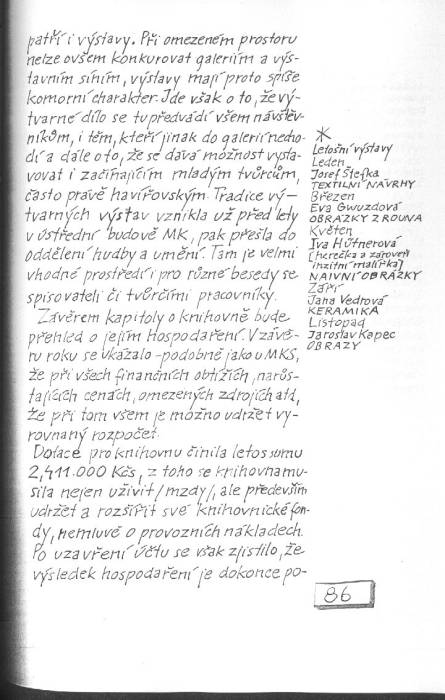 patří i výstavy. Při omezeném prostoru
nelze ovšem konkurovat galeriím a výs-
tavním síním, výstavy mají proto spíše
komorní charakter. Jde však o to, že vý-
tvarné dílo se tu předvádí všem návštěv-
níkům, i těm, kteří jinak do galerií necho-
dí a dále o to, že se dává možnost vysta-
vovat i začínajícím mladým tvůrcům,
často právě havířovským. Tradice vý-
tvarných výstav vznikla už před lety
v ústřední budově MK, pak přešla do
oddělení hudby a umění. Tam je velmi
vhodné prostředí i pro různé besedy se
spisovateli či tvůrčími pracovníky.
Závěrem kapitoly o knihovně bude
přehled o jejím hospodaření. V závě-
ru roku se ukázalo - podobně jako u MKS,
že při všech finančních obtížích, narůs-
tajících cenách, omezených zdrojích atd,
že při tom všem je možno udržet vy-
rovnaný rozpočet.
Dotace pro knihovnu činila letos sumu
2,411.000 Kčs, z toho se knihovna mu-
sila nejen uživit /mzdy/, ale především
udržet a rozšířit své knihovnické fon-
dy, nemluvě o provozních nákladech.
Po uzavření účtu se však zjistilo, že
výsledek hospodaření je dokonce po-
*
Letošní výstavy
Leden
Josef Stefka
TEXTILNÍ NÁVRHY
Březen
Eva Gwuzdová
OBRÁZKY Z ROUNA
Květen
Iva Hüttnerová
(herečka a zároveň
inzitní malířka)
NAIVNÍ OBRÁZKY
Září
Jana Vedrová
KERAMIKA
Listopad
Jaroslav Kapec
OBRAZY
86